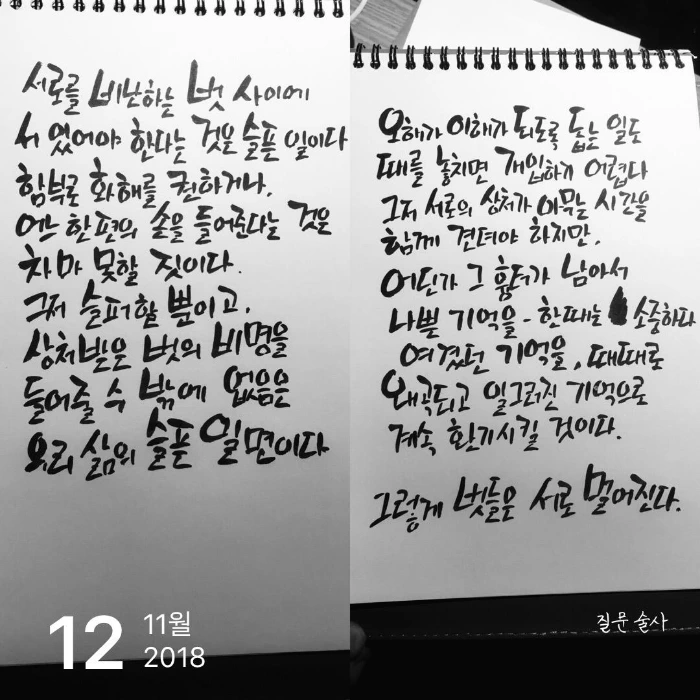 서로를 비난하는 벗 사이에
서 있어야 한다는 것은 슬픈 일이다
함부로 화해를 권하거나,
어느 한편의 손을 들어준다는 것은
차마 못할 짓이다.
그저 슬퍼할 뿐이고,
상처받은 벗의 비명을
들어줄 수 밖에 없음은
우리 삶의 슬픈 일면이다
오해가 이해가 되도록 돕는 일도
때를 놓치면 개입하기 어렵다
그저 서로의 상처가 아무는 시간을
함께 견뎌야 하지만,
어딘가 그 흉터가 남아서
나쁜 기억을 - 한때는 소중하다
여겼던 기억을, 때때로
왜곡되고 일그러진 기억으로
계속 환기시킬 것이다.
그렇게 벗들은 서로 멀어진다.
12 11월
2018
질문 술사